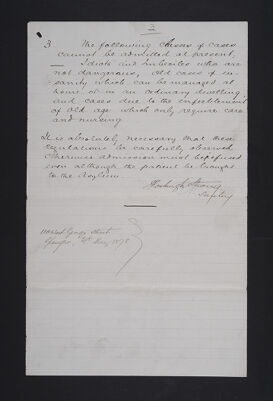 2
3 The following classes of cases
cannot be admitted at present,
Idiots and Imbeciles who are
not dangerous, old cases of in-
sanity which can be managed at
home or in an ordinary dwelling
and cases due to the enfeeblement
of old age which only require care
and nursing
It is absolutely necessary that these
regulations be carefully observed
otherwise admission must be refused
even although the patient be brought
to the Asylum.
West George Street
1878